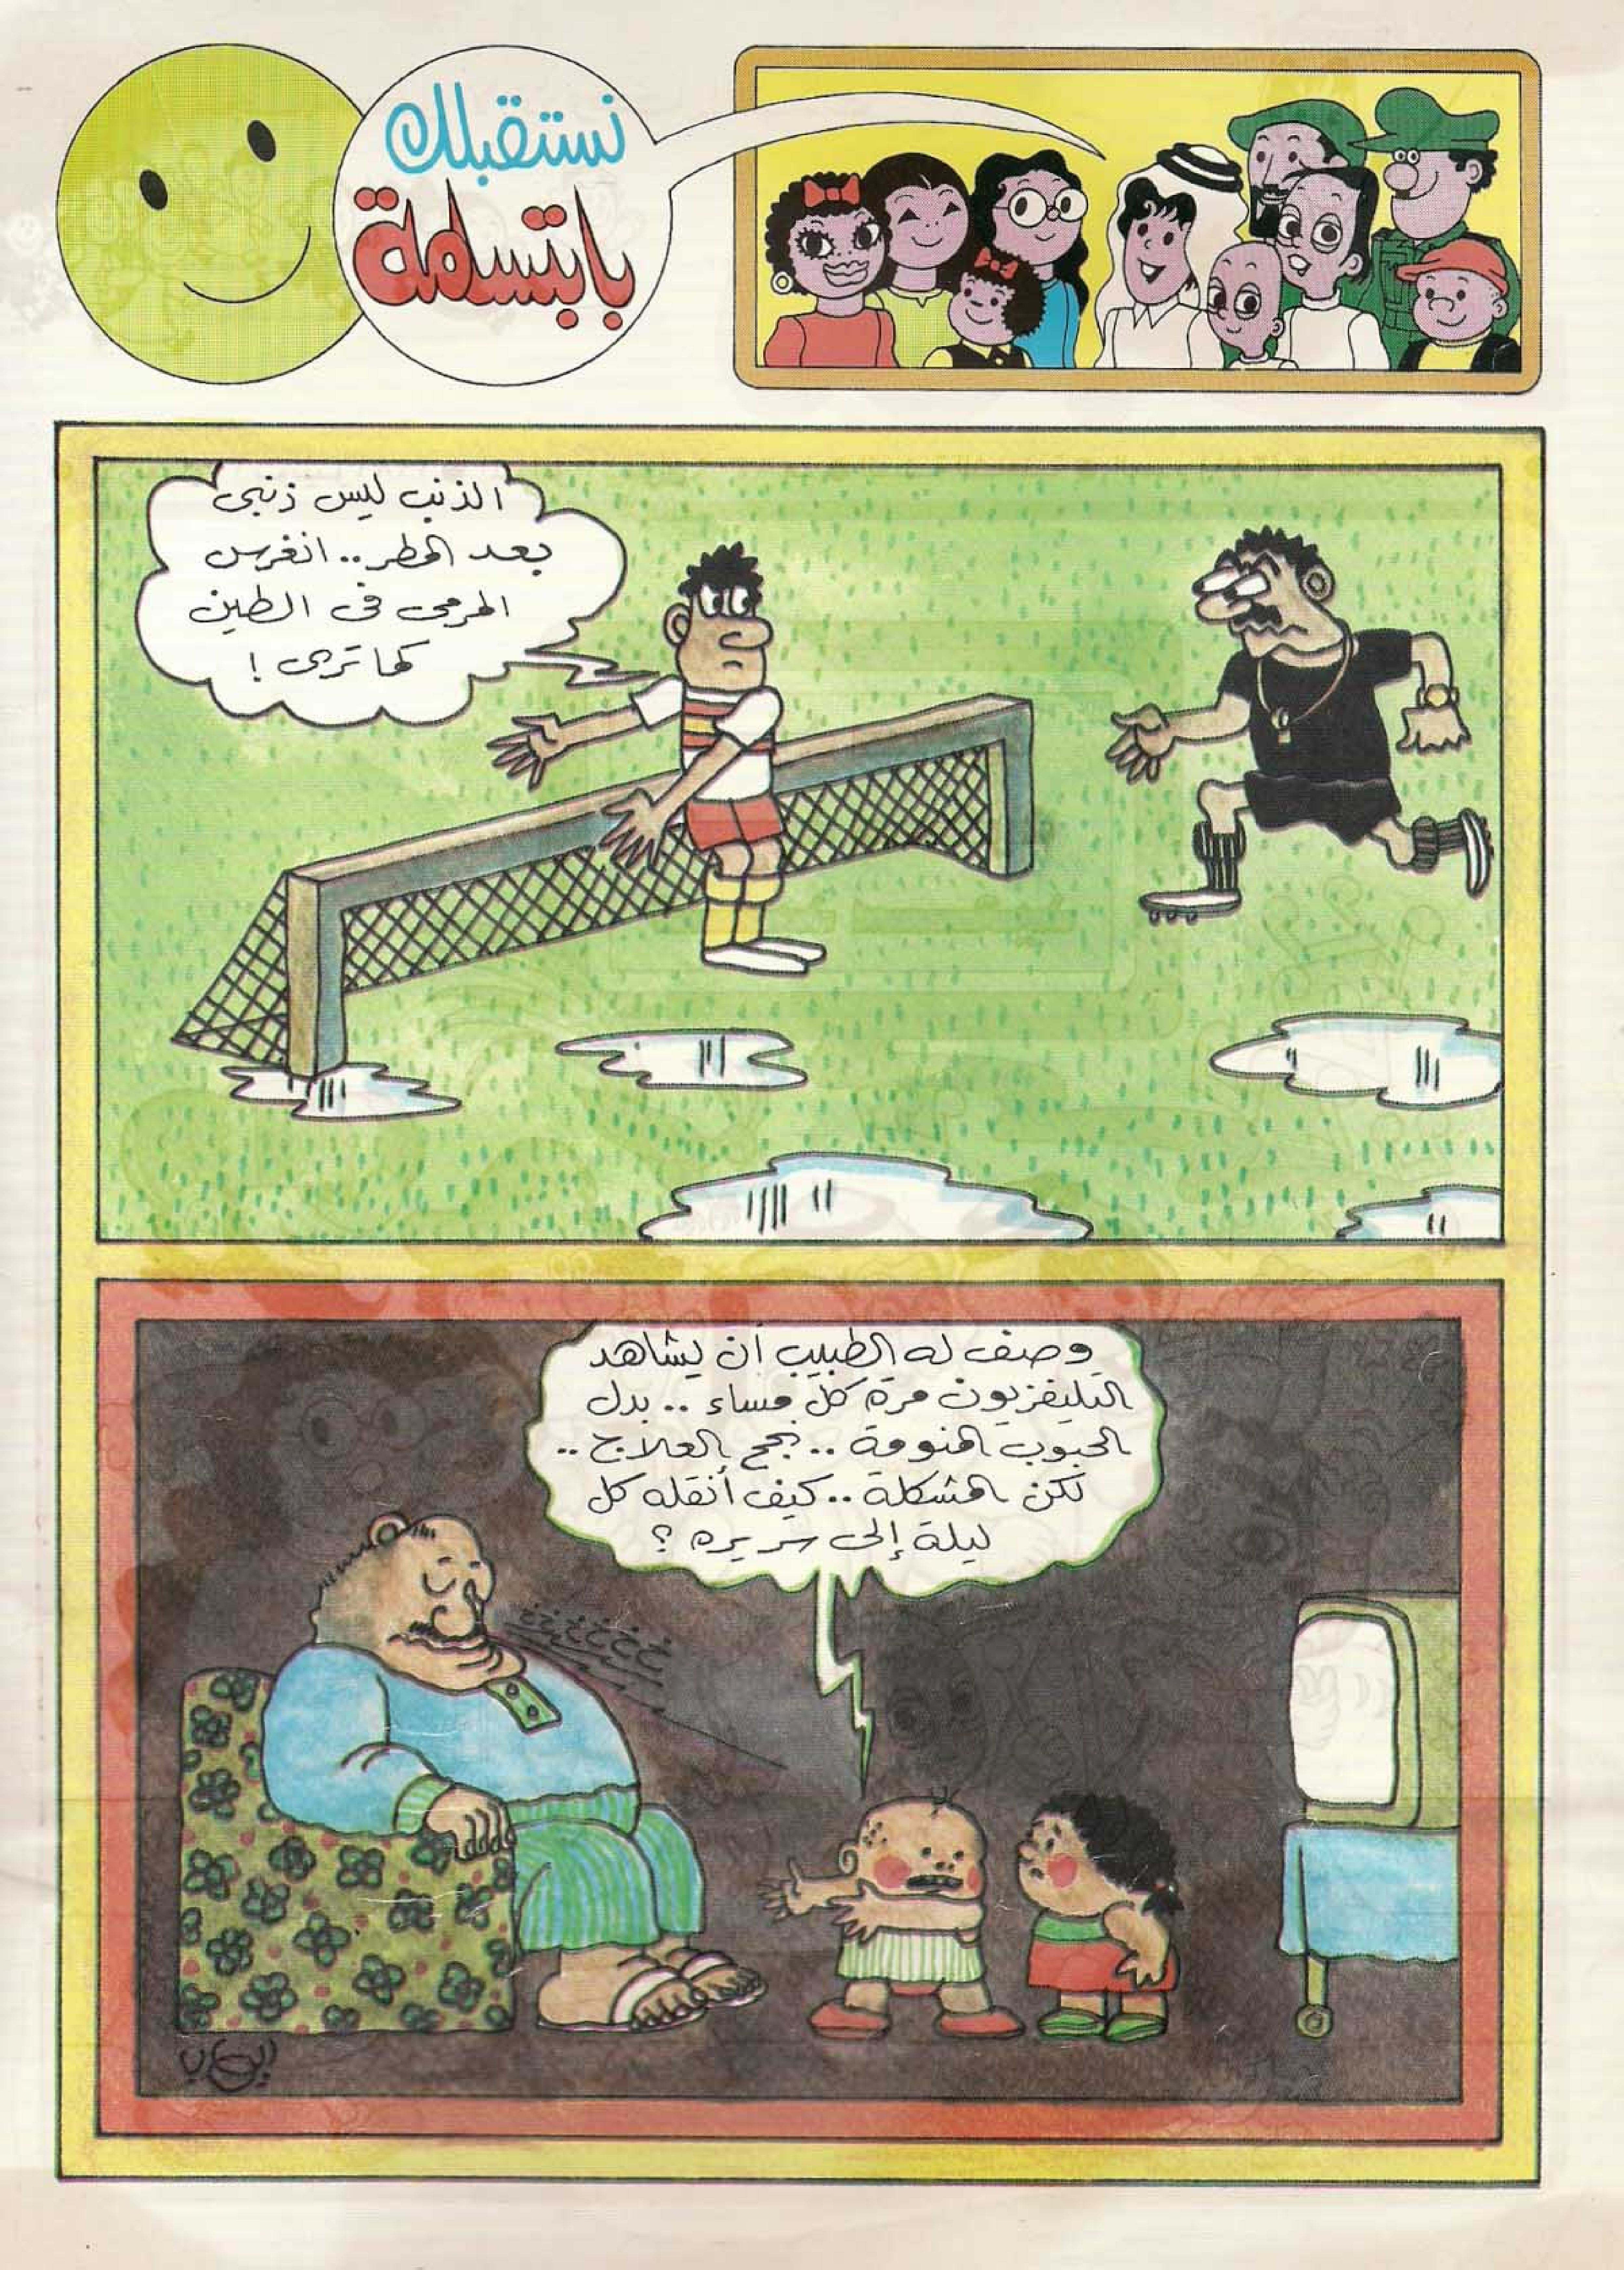 نستقبلك
بابتسامة
الذنب ليس ذنبى
بعد المطر.. انغرس
المرمى فى الطين
كما ترى !
وصف له الطبيب أن يشاهد
التليفزيون مرة كل مساء .. بدل
الحبوب المنومة .. نجح العلاج ..
لكن المشكلة .. كيف أنقله كل
ليلة إلى سريره ؟
خ خ خ خ خ خ
إيهاب